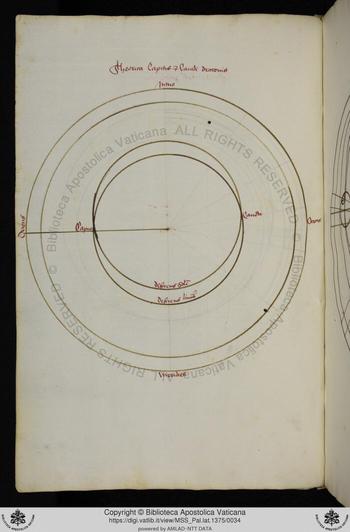 Theorica Capitis & Caude draconis
Caput
Cauda
deferens solis
deferens lune
© Biblioteca Apostolica Vaticana ALL RIGHTS RESERVED
© Biblioteca Apostolica Vaticana ALL RIGHTS RESERVED
Copyright © Biblioteca Apostolica Vaticana
https://digi.vatlib.it/view/MSS_Pal.lat.1375/0034
powered by AMLAD-NTT DATA